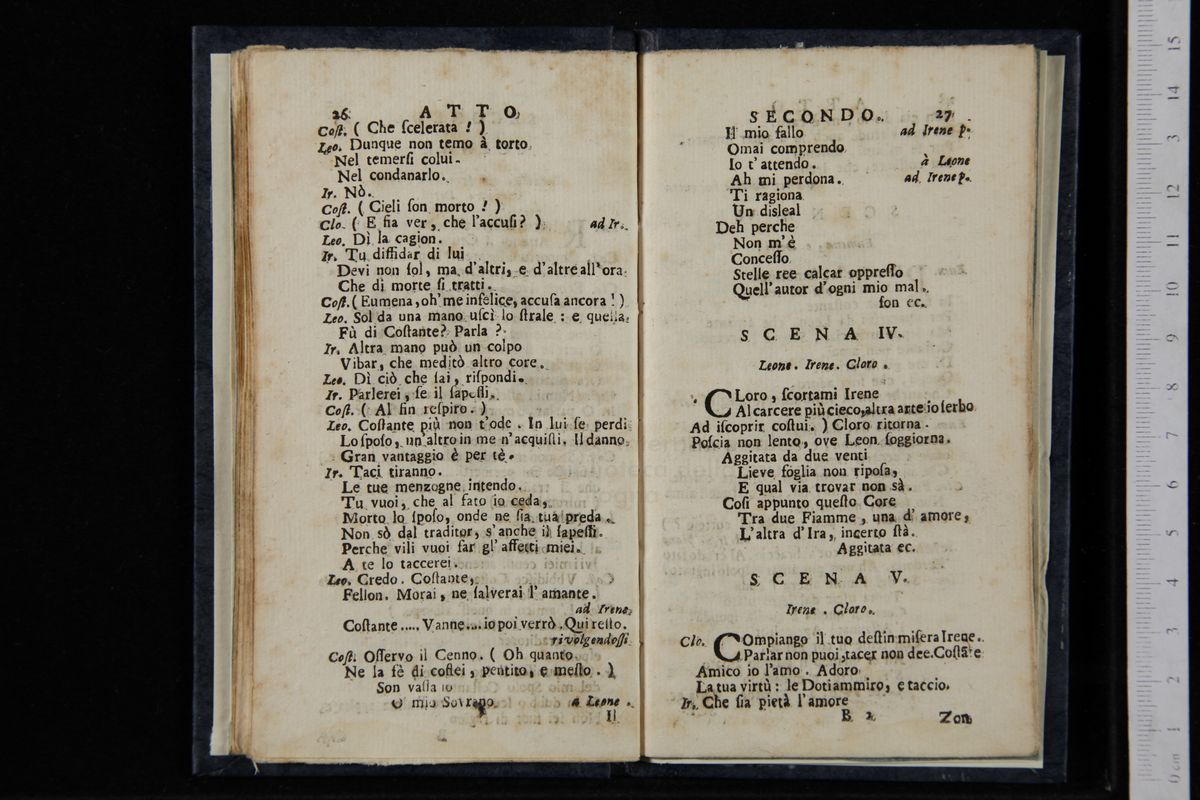 26. ATTO
Coſt. ( Che ſcelerata ! )
Leo. Dunque non temo à torto
Nel temerſi colui.
Nel condanarlo.
Ir. Nò.
Coſt. ( Cieli ſon morto ! )
Clo. ( E fia ver, che l'accuſi ? ) ad Ir.
Leo. Dì la cagion.
Ir. Tu diffidar di lui
Devi non ſol, ma d'altri, e d'altre all'ora
Che di morte ſi tratti.
Coſt. ( Eumena, oh' me infelice, accuſa ancora ! )
Leo. Sol da una mano uſcì lo ſtrale : e quella
Fù di Coſtante? Parla ?
Ir. Altra mano può un colpo
Vibar, che meditò altro core.
Leo. Dì ciò che ſai, riſpondi.
Ir. Parlerei, ſe il ſapeſſi.
Coſt. ( Al fin reſpiro. )
Leo. Coſtante più non t'ode. In lui ſe perdi
Lo ſpoſo, un'altro in me n'acquiſti. Il danno
Gran vantaggio è per tè.
Ir. Taci tiranno.
Le tue menzogne intendo.
Tu vuoi, che al fato io ceda,
Morto lo ſpoſo, onde ne ſia tua preda.
Non sò dal traditor, s'anche il ſapeſſi.
Perche vili vuoi far gl'affetti miei.
A te lo taccerei.
Leo. Credo. Coſtante,
Fellon. Morai, ne ſalverai l'amante.
ad Irene.
Coſtante..... Vanne.... io poi verrò. Qui reſto.
rivolgendoſſi
Coſt. Oſſervo il Cenno. ( Oh quanto
Ne la fè di coſtei, pentito, e meſto. )
Son vaſſalo
O mio Sovrano à Leone.
Il
SECONDO. 27
Il mio fallo ad Irene p.
Omai comprendo
Io t'attendo. à Leone
Ah mi perdona. ad Irene p.
Ti ragiona
Un disleal
Deh perche
Non m'è
Conceſſo
Stelle ree calcar oppreſſo
Quell'autor d'ogni mio mal.
ſon ec.
SCENA IV.
Leone. Irene. Cloro.
CLoro, ſcortami Irene
Al carcere più cieco, altra arte io ſerbo
Ad iſcoprir coſtui. ) Cloro ritorna.
Poſcia non lento, ove Leon ſoggiorna.
Aggitata da due venti
Lieve foglia non ripoſa,
E qual via trovar non sà.
Coſì appunto queſto Core
Tra due Fiamme, una d'amore,
L'altra d'Ira, incerto ſtà.
Aggitata ec.
SCENA V.
Irene. Cloro.
Clo. COmpiango il tuo deſtin miſera Irene.
Parlar non puoi, tacer non dee. Coſtāte
Amico io l'amo. Adoro
La tua virtù : le Doti ammiro, e taccio.
Ir. Che ſia pietà l'amore
B 2 Zon